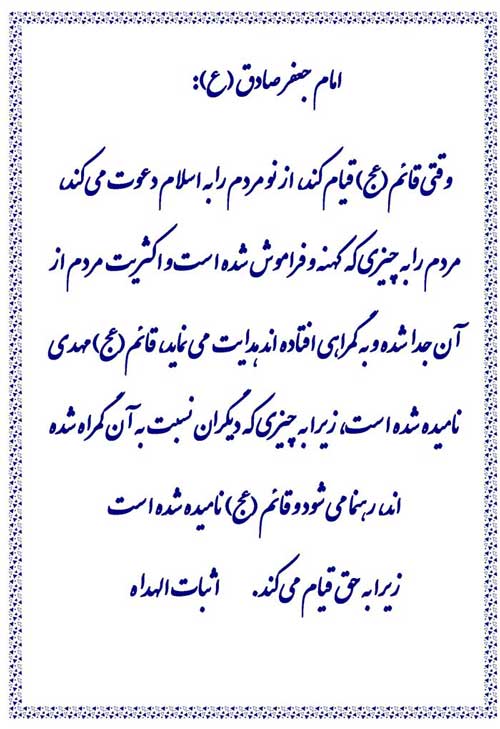 امام جعفر صادق (ع):
وقتی قائم (عج) قیام کند، از نو مردم را به اسلام دعوت می کند،
مردم را به چیزی که کهنه و فراموش شده است و اکثریت مردم از
آن جدا شده و به گمراهی افتاده اند هدایت می نماید، قائم (عج) مهدی
نامیده شده است، زیرا به چیزی که دیگران نسبت به آن گمراه شده
اند، رهنما می شود و قائم (عج) نامیده شده است
زیرا به حق قیام می کند. اثبات الهداه